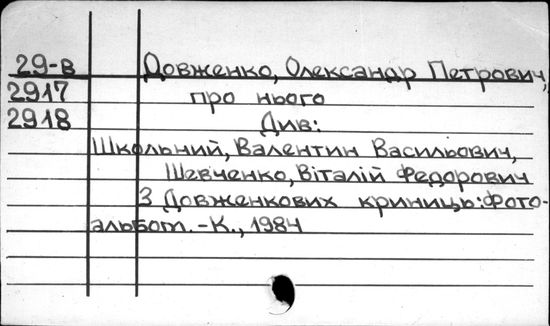 29-в Довженко, Олександр Петрович,
2917 про нього
2918 Див:
Школьний, Валентин Васильович,
Шевченко, Віталій Федорович
З Довженкових криниць: Фото-
альбом. - К., 1984